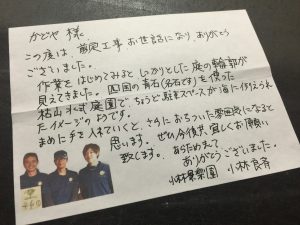 かどや 様
この度は、剪定工事 お世話になり、ありがとう
ございました。
作業をはじめてみると しっかりとした庭の輪郭が
見えてきました。四国の青石(名石です)を使った
枯山水式庭園で、ちょうど駐車スペースが海に例えられ
たイメージのようです。
まめに手を入れていくと、さらにおちついた雰囲気になると
思います。ぜひ今後共、宜しくお願い
致します。あらためまして
ありがとうございました。
小林 良斉